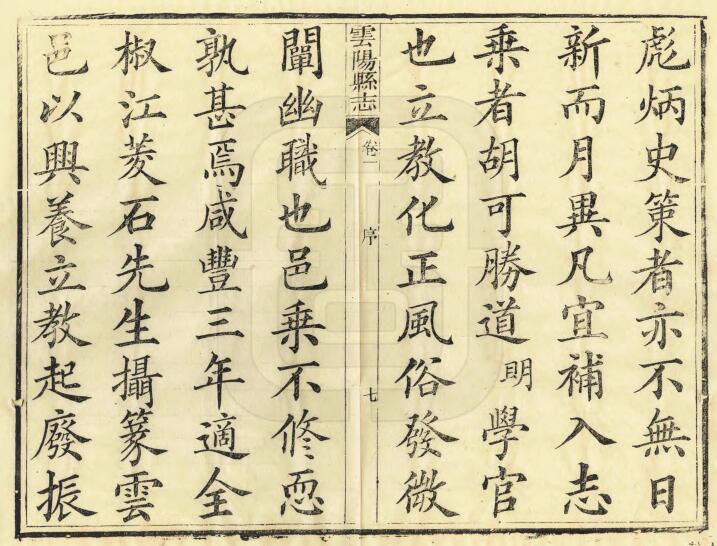 彪炳史策者亦不無日
新而月異凡宜補入志
乘者胡可勝道明學官
也立教化正風俗發微
雲陽縣志
卷一
序
七
闡幽職也邑乘不修恧
孰甚焉咸豐三年適全
椒江菱石先生攝篆雲
邑以興養立教起廢振